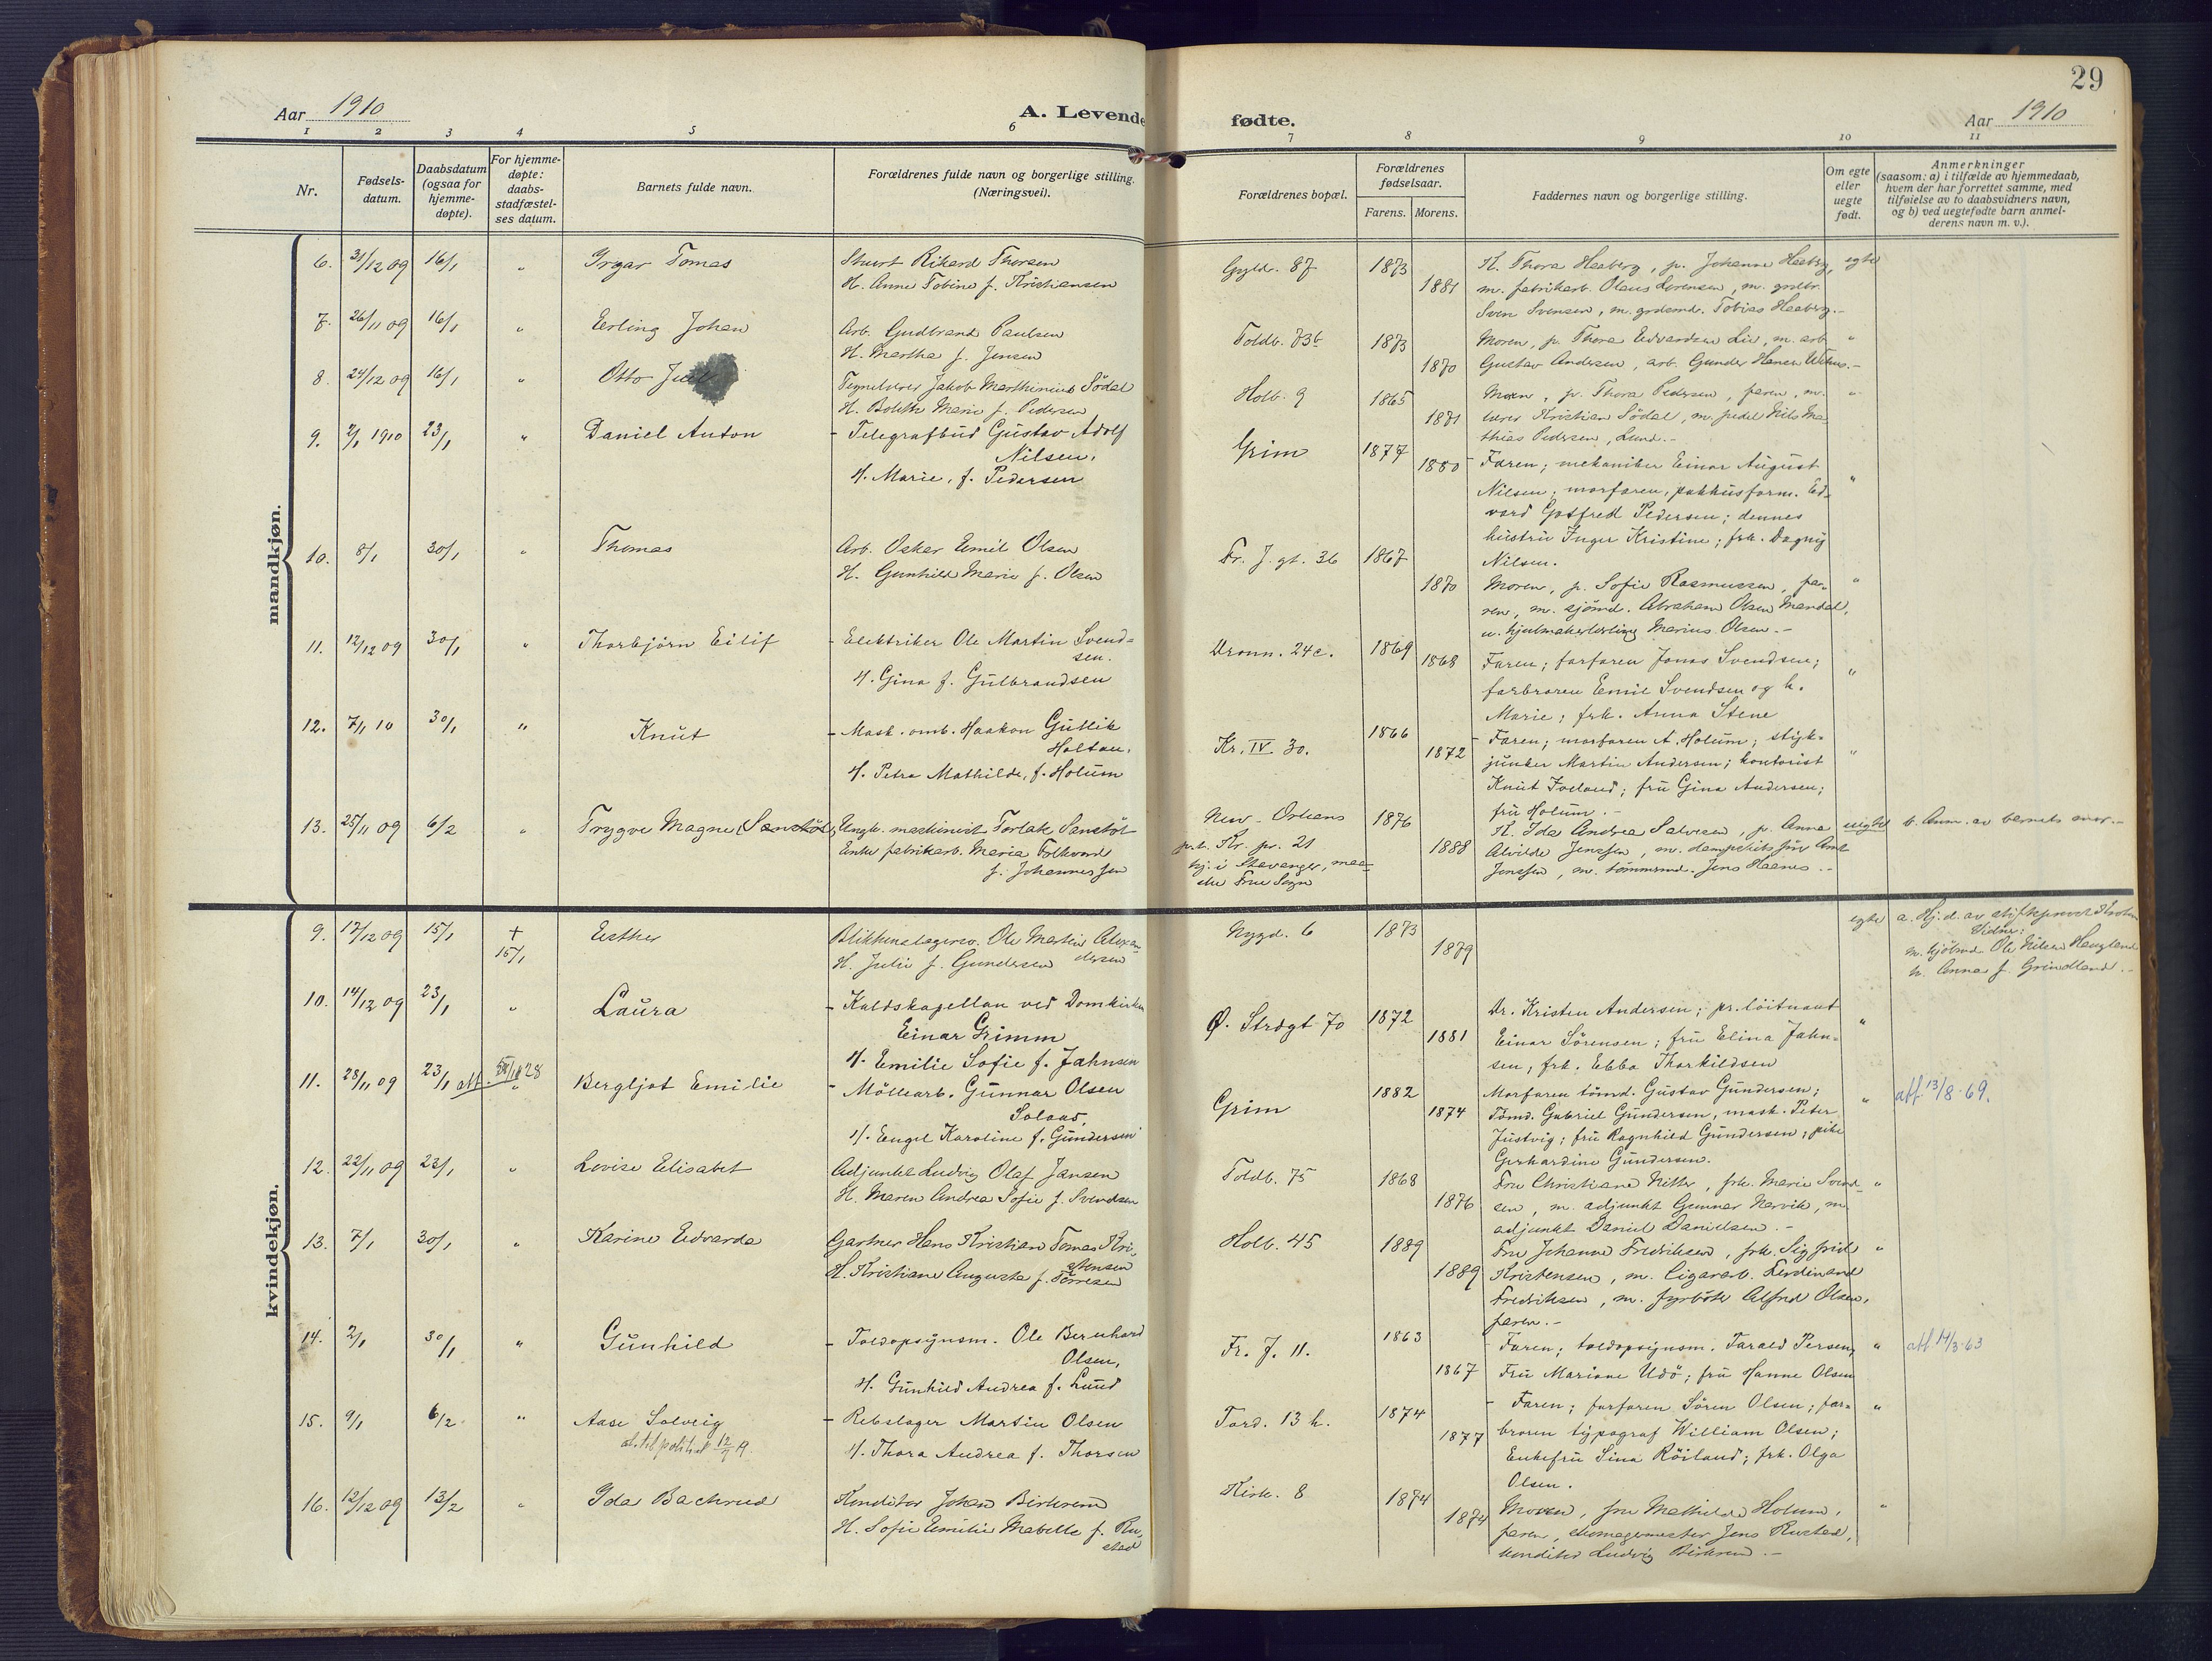 29
Aar 1910
A. Levende fødte.
Aar 1910
1 2 3 4 5 6 7 8 9 10 11
Nr.
Fødsels-
datum.
Daabsdatum
(ogsaa for
hjemme-
døpte).
For hjemme-
døpte:
daabs-
stadfæstel-
ses datum.
Barnets fulde navn.
Forældrenes fulde navn og borgerlige stilling.
(Næringsvei).
Forældrenes bopæl.
Forældrenes
fødselsaar.
Farens. Morens.
Faddernes navn og borgerlige stilling.
Om egte
eller
uegte
født.
Anmerkninger
(saasom: a) i tilfælde av hjemmedaab,
hvem der har forrettet samme, med
tilføielse av to daabsvidners navn,
og b) ved uegtefødte barn anmel-
derens navn m. v.).
mandkjøn.
6. 31/12 09 16/1 " Yngar Tomas
Stuert Rikard Thorsen
H. Anne Tobine f. Kristiansen
Gyld. 87 1873 1881
H. Thora Haaberg, p. Johanne Haaberg, egte
m. fabrikarb. Olaus Lorensen, m. grdbr.
Sven Svensen, m. grdmd. Tobias Haaberg.-
7. 26/11 09 16/1 " Erling Johan
Arb. Gudbrand Paulsen
H. Martha f. Jensen
Toldb. 73b 1873 1870
Moren, p. Thora Edvardsen Lie, m. arb "
Gustav Andersen, arb. Gunder Hansen
8. 24/12 09 16/1 " Otto
Jakob Marthinius Sødal
H. Bolette Marie f. Pedersen
Holb. 9 1865 1871
Moren, p. Thora Pedersen, faren, m. "
lærer Kristian Sødal, m. pedel Nils Ma-
thias Pedersen, Lund.-
9. 2/1 1910 23/1 " Daniel Anton
- Telegrafbud Gustav Adolf
Nilsen.
H. Marie, f. Pedersen
Grim 1877 1880
- Faren; mekaniker Einar August
Nilsen; morfaren, pakhusform. Ed- "
vard Gotfred Pedersen; dennes
hustru Inger Kristine; frk. Dagny
Nilsen.
10. 8/1 30/1 " Thomas
Arb. Oskar Emil Olsen
H. Gunhild Marie f. Olsen
Fr. J. gt. 36 1867 1870
Moren, p. Sofie Rasmussen, fa- "
ren, m. sjømd. Abraham Olsen Mandal,
u. hjulmakerlærling Marius Olsen.-
11. 12/12 09 30/1 " Thorbjørn Eilif
- Elektriker Ole Martin Svend-
sen.
H. Gina f. Gulbrandsen
Dronn. 24c. 1869 1868
Faren; farfaren Jonas Svendsen; "
farbroren Emil Svendsen og h.
Marie; frk. Anna Stene
12. 7/1 10 30/1 " Knut
- Mask. omb. Haakon Gullik
Holtan.
H. Petra Mathilde, f. Holum
Kr. IV. 30. 1866 1872
- Faren; morfaren A. Holum; styk-
junker Martin Andersen; kontorist "
Knut Foeland; fru Gina Andersen;
fru Holum.-
13. 25/11 09 6/2 " Trygve Magne (Sanstöl)
Ungk. maskinist Torlak Sanstöl
Enke fabrikarb. Maria Folkvord
f. Johannessen
New-Orleans 1876 1888
p.t. Kr. pr. 21
hj. i Stavanger,
Frue Sogn
H. Ida Andrea Salvesen, p. Anna uegte b. Anm. av barnets mor.-
Alvilde Jenssen, m. dampskibsfører
Jenssen, m. tømmermd. Jens Haanes.-
kvindekjøn.
9. 17/12 09 15/1 + 15/1 Esther
Ole Martin Alexan-
dersen
H. Julie f. Gundersen
Nygd. 6 1873 1879
egte a. Hj.d. av stiftsprovst
Vidner:
Ole Nilsen Haugland
h. Anna f. Grindland.-
10. 14/12 09 23/1 " Laura
- Kaldskapellan ved Domkirken
Einar Grimm
H. Emilie Sofie f. Jahnsen
Ø. Strdgt 70 1872 1881
Dr. Kristen Andersen; pr. löitnant
Einar Sörensen; fru Elina Jahn- "
sen, frk. Ebba Thorkildsen
11. 28/11 09 23/1 att. 28 " Bergljot Emilie
- Möllearb. Gunnar Olsen
Solaas,
H. Engel Karoline f. Gundersen
Grim 1882 1874
Morfaren tömd. Gustav Gundersen;
Tömd. Gabriel Gundersen, mask. Peter " att. 13/8-69.
Justvig; fru Ragnhild Gundersen; pike
Gerhardine Gundersen.
12. 22/11 09 23/1 " Lovise Elisabet
Adjunkt Ludvig Olaf Jansen
H. Maren Andrea Sofie f. Svendsen
Toldb. 75 1868 1876
Fru Christiane Nitter, frk. Marie Svend- "
sen, m. adjunkt Gunnar Nervik, m.
adjunkt Daniel Danielsen.-
13. 7/1 30/1 " Karine Edvarda
Gartner Hans Kristian Tomas Kri-
stensen
H. Kristiane Augusta f. Terresen
Holb. 45 1889 1889
Fru Johanne Fredriksen, frk. Sigfrid "
Kristensen, m. Cigararb. Ferdinand
Fredriksen, m. fyrböter Alfred Olsen,
faren.-
14. 2/1 30/1 " Gunhild
- Toldopsynsm. Ole Bernhard
Olsen,
H. Gunhild Andrea f. Lund
Fr. J. 11. 1863 1867
- Faren; toldopsynsm. Tarald Persen, " att. 14/3-63
Fru Mariane Udö; fru Hanne Olsen
15. 9/1 6/2 " Aase Solveig
at. til politiet 12/9 19.
- Rebslager Martin Olsen
H. Thora Andrea f. Thorsen
Tord. 13 h. 1874 1877
- Faren; farfaren Sören Olsen; far- "
broren typograf William Olsen;
Enkefru Sina Röiland; frk. Olga
Olsen.
16. 12/12 09 13/2 " Ida Bachrud
Konditor Johan Birkrem
H. Sofie Emilie Mabelle f. Ru-
stad
Kirk. 8 1874 1874
Moren, fru Mathilde Holum, "
faren, skomagermester Jens Rustad,
konditor Ludvig Birkrem.-